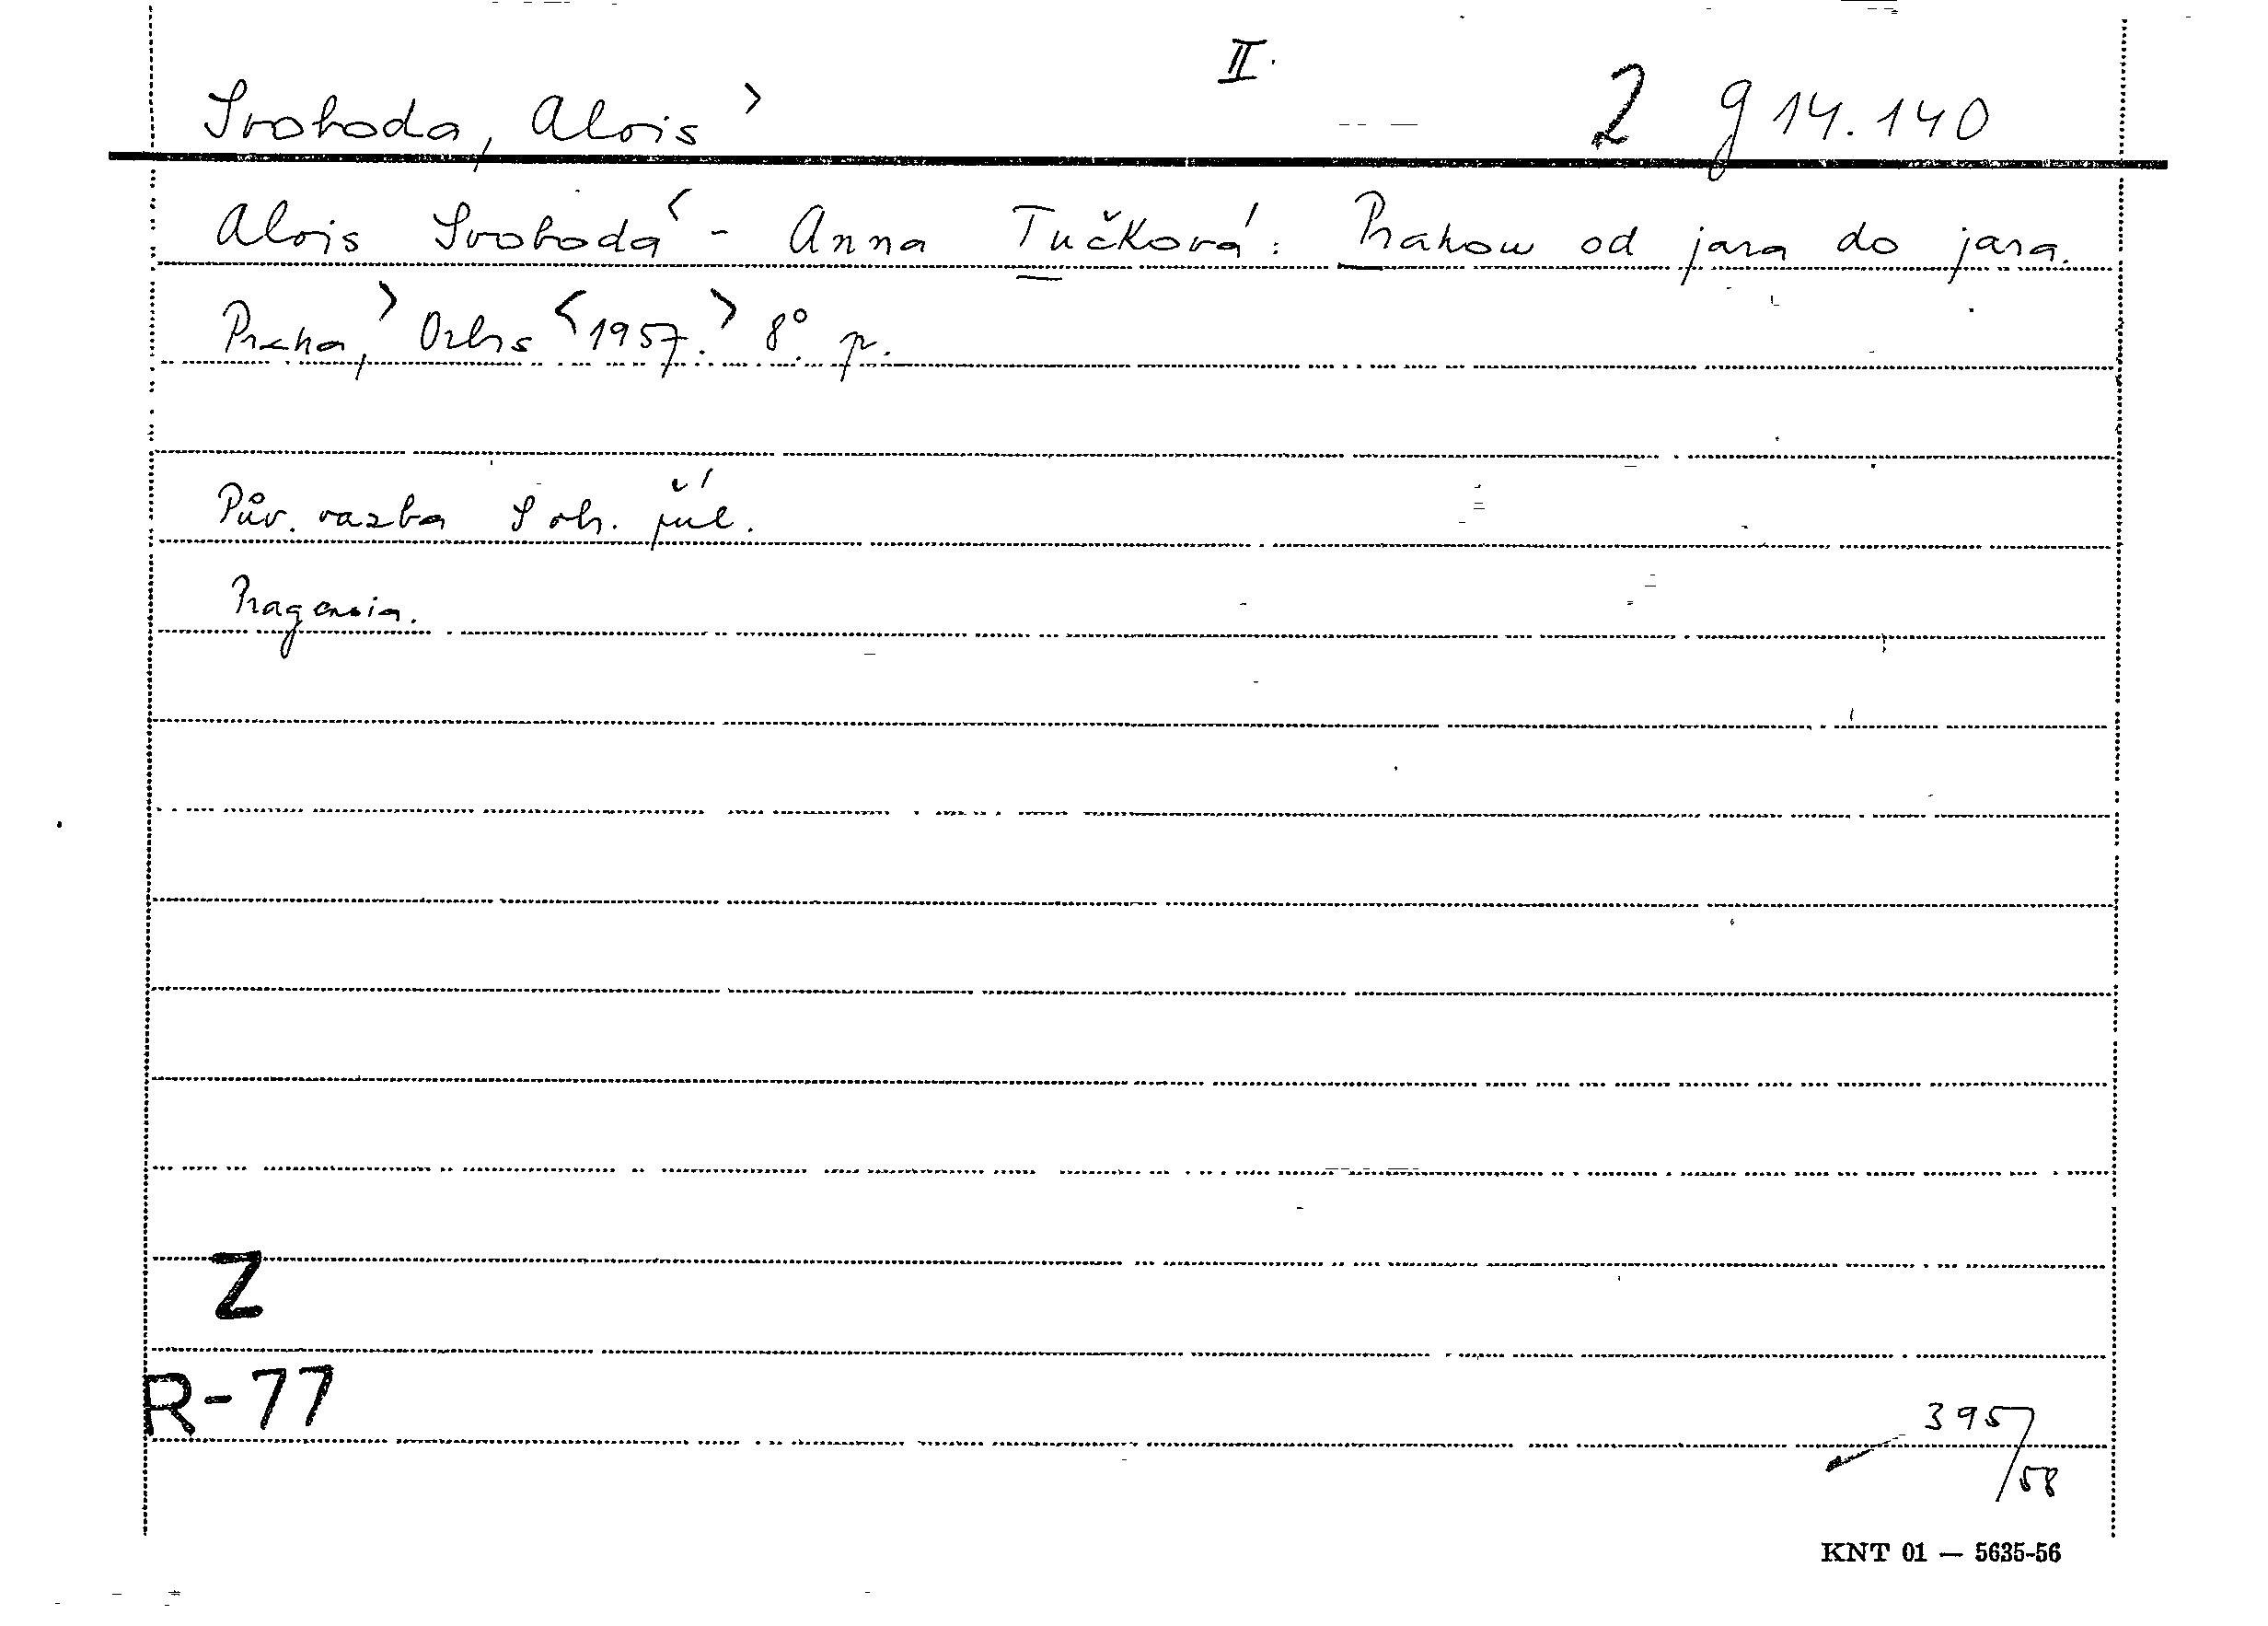 II.
Svoboda, Alois > 2 g 14.140
Alois Svoboda < - Anna Tučková: Prahou od jara do jara.
Praha, > Orbis < 1957. > 8°. p.
Pův. vazba S ob. příl.
Pragensia.
Z
R-77
395/58
KNT 01 — 5635-56